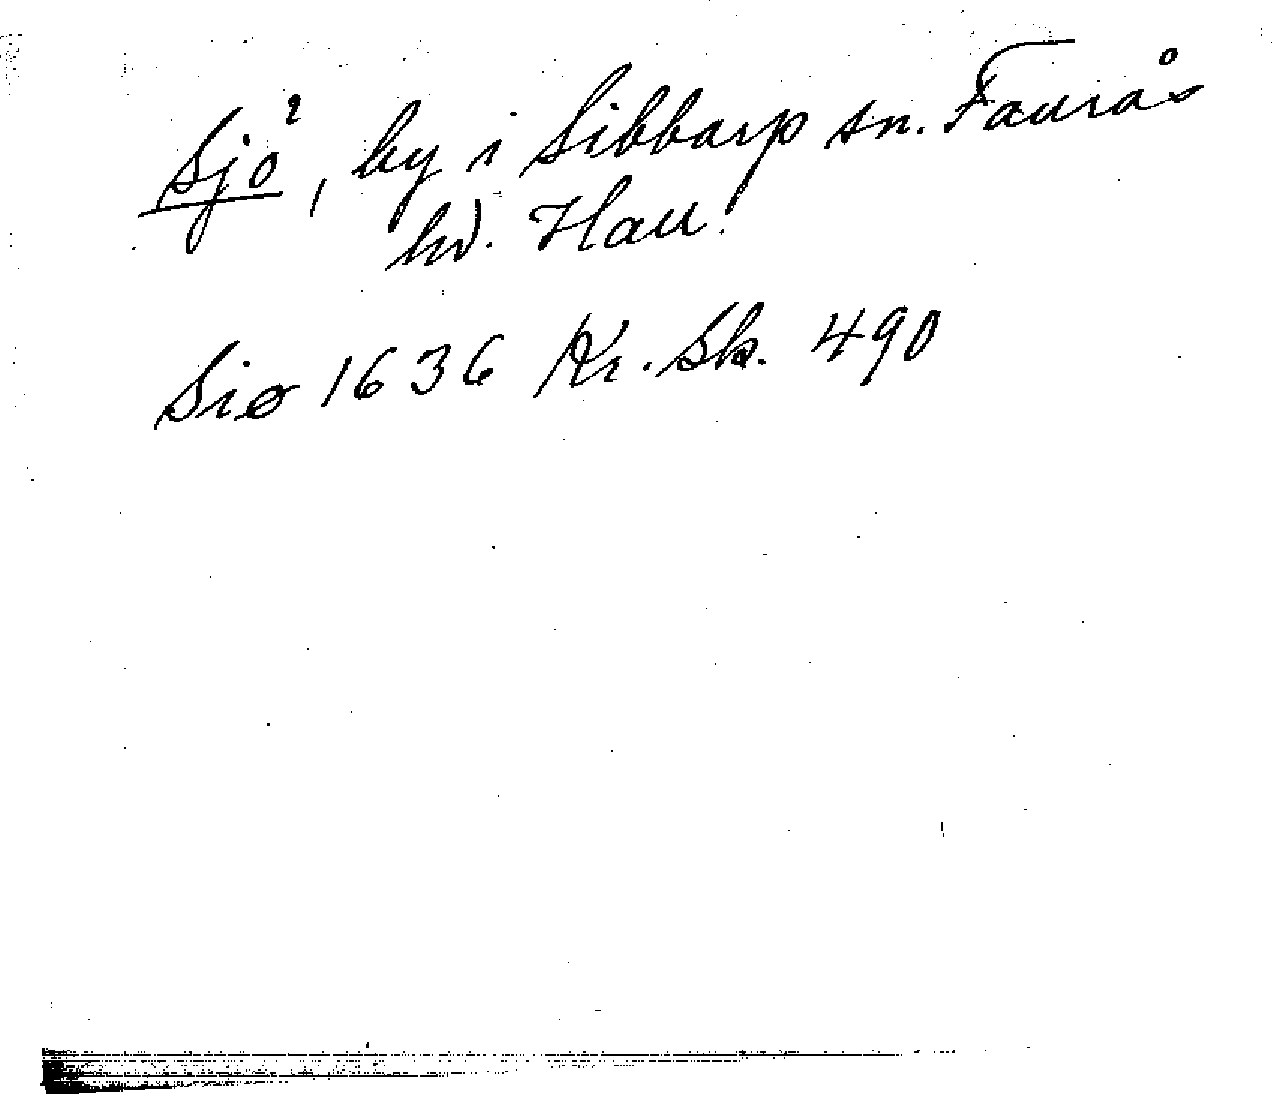 Sjö, by i Sibbarp sn. Faurås
hd. Hall.
Siø 1636 Kr. Sk. 490